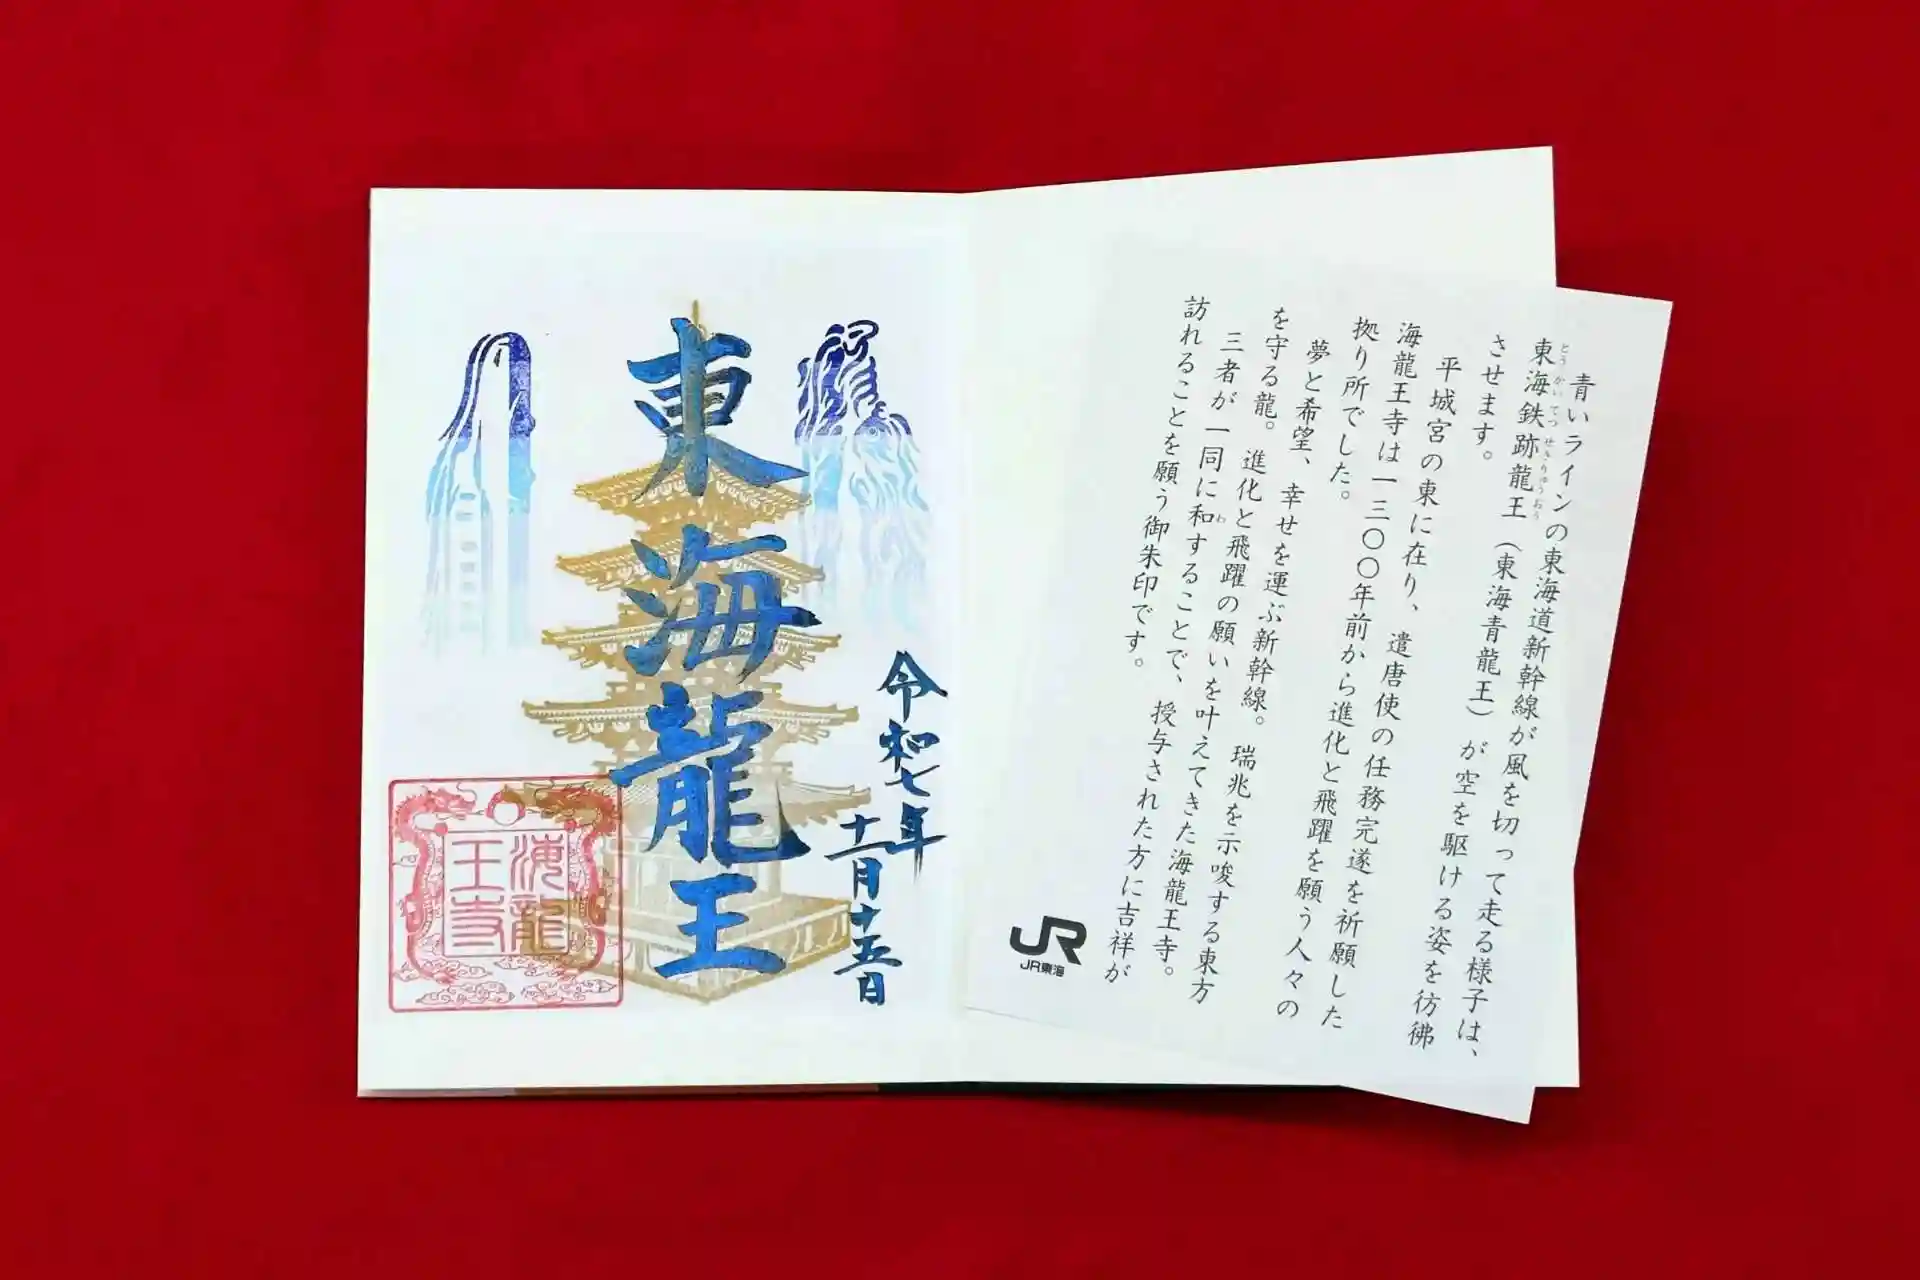 東海龍王
令和七年
十二月十五日
海龍
王寺
青いラインの東海道新幹線が風を切って走る様子は、
とうかいてつせきりゅうおう
東海鉄跡龍王（東海青龍王）が空を駆ける姿を彷彿
させます。
平城宮の東に在り、遣唐使の任務完遂を祈願した
海龍王寺は一三〇〇年前から進化と飛躍を願う人々の
拠り所でした。
夢と希望、幸せを運ぶ新幹線。瑞兆を示唆する東方
を守る龍。進化と飛躍の願いを叶えてきた海龍王寺。
わ
三者が一同に和することで、授与された方に吉祥が
訪れることを願う御朱印です。
JR
JR東海